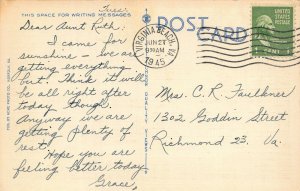 Tues.
THIS SPACE FOR WRITING MESSAGES
Dear Aunt Ruth:
I came for
sunshine - we are
getting everything
but. Think it will
be all right after
today though.
Anyway we are
getting plenty of
rest.
Hope you are
feeling better today.
Grace.
POST CARD
VIRGINIA BEACH, VA.
JUN 27
9 30 AM
1945
1
Mrs. C. R. Faulkner
1302 Goddin Street
Richmond 23. Va.